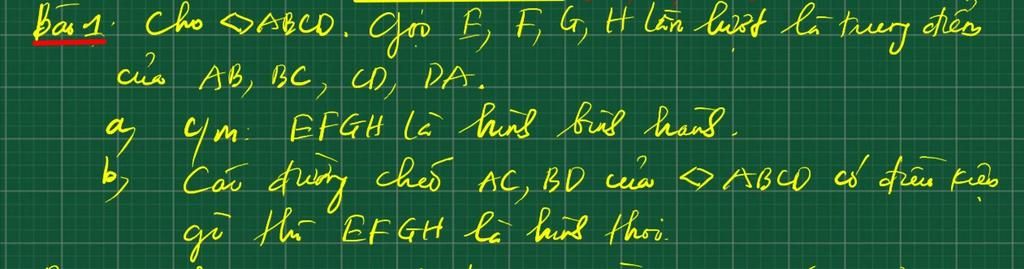 Bài 1. Cho ◇ABCD. Gọi E, F, G, H lần lượt là trung điểm
của AB, BC, CD, DA.
a, c/m: EFGH là hình bình hành.
b, Các đường chéo AC, BD của ◇ABCD có điều kiện
gì thì EFGH là hình thoi.